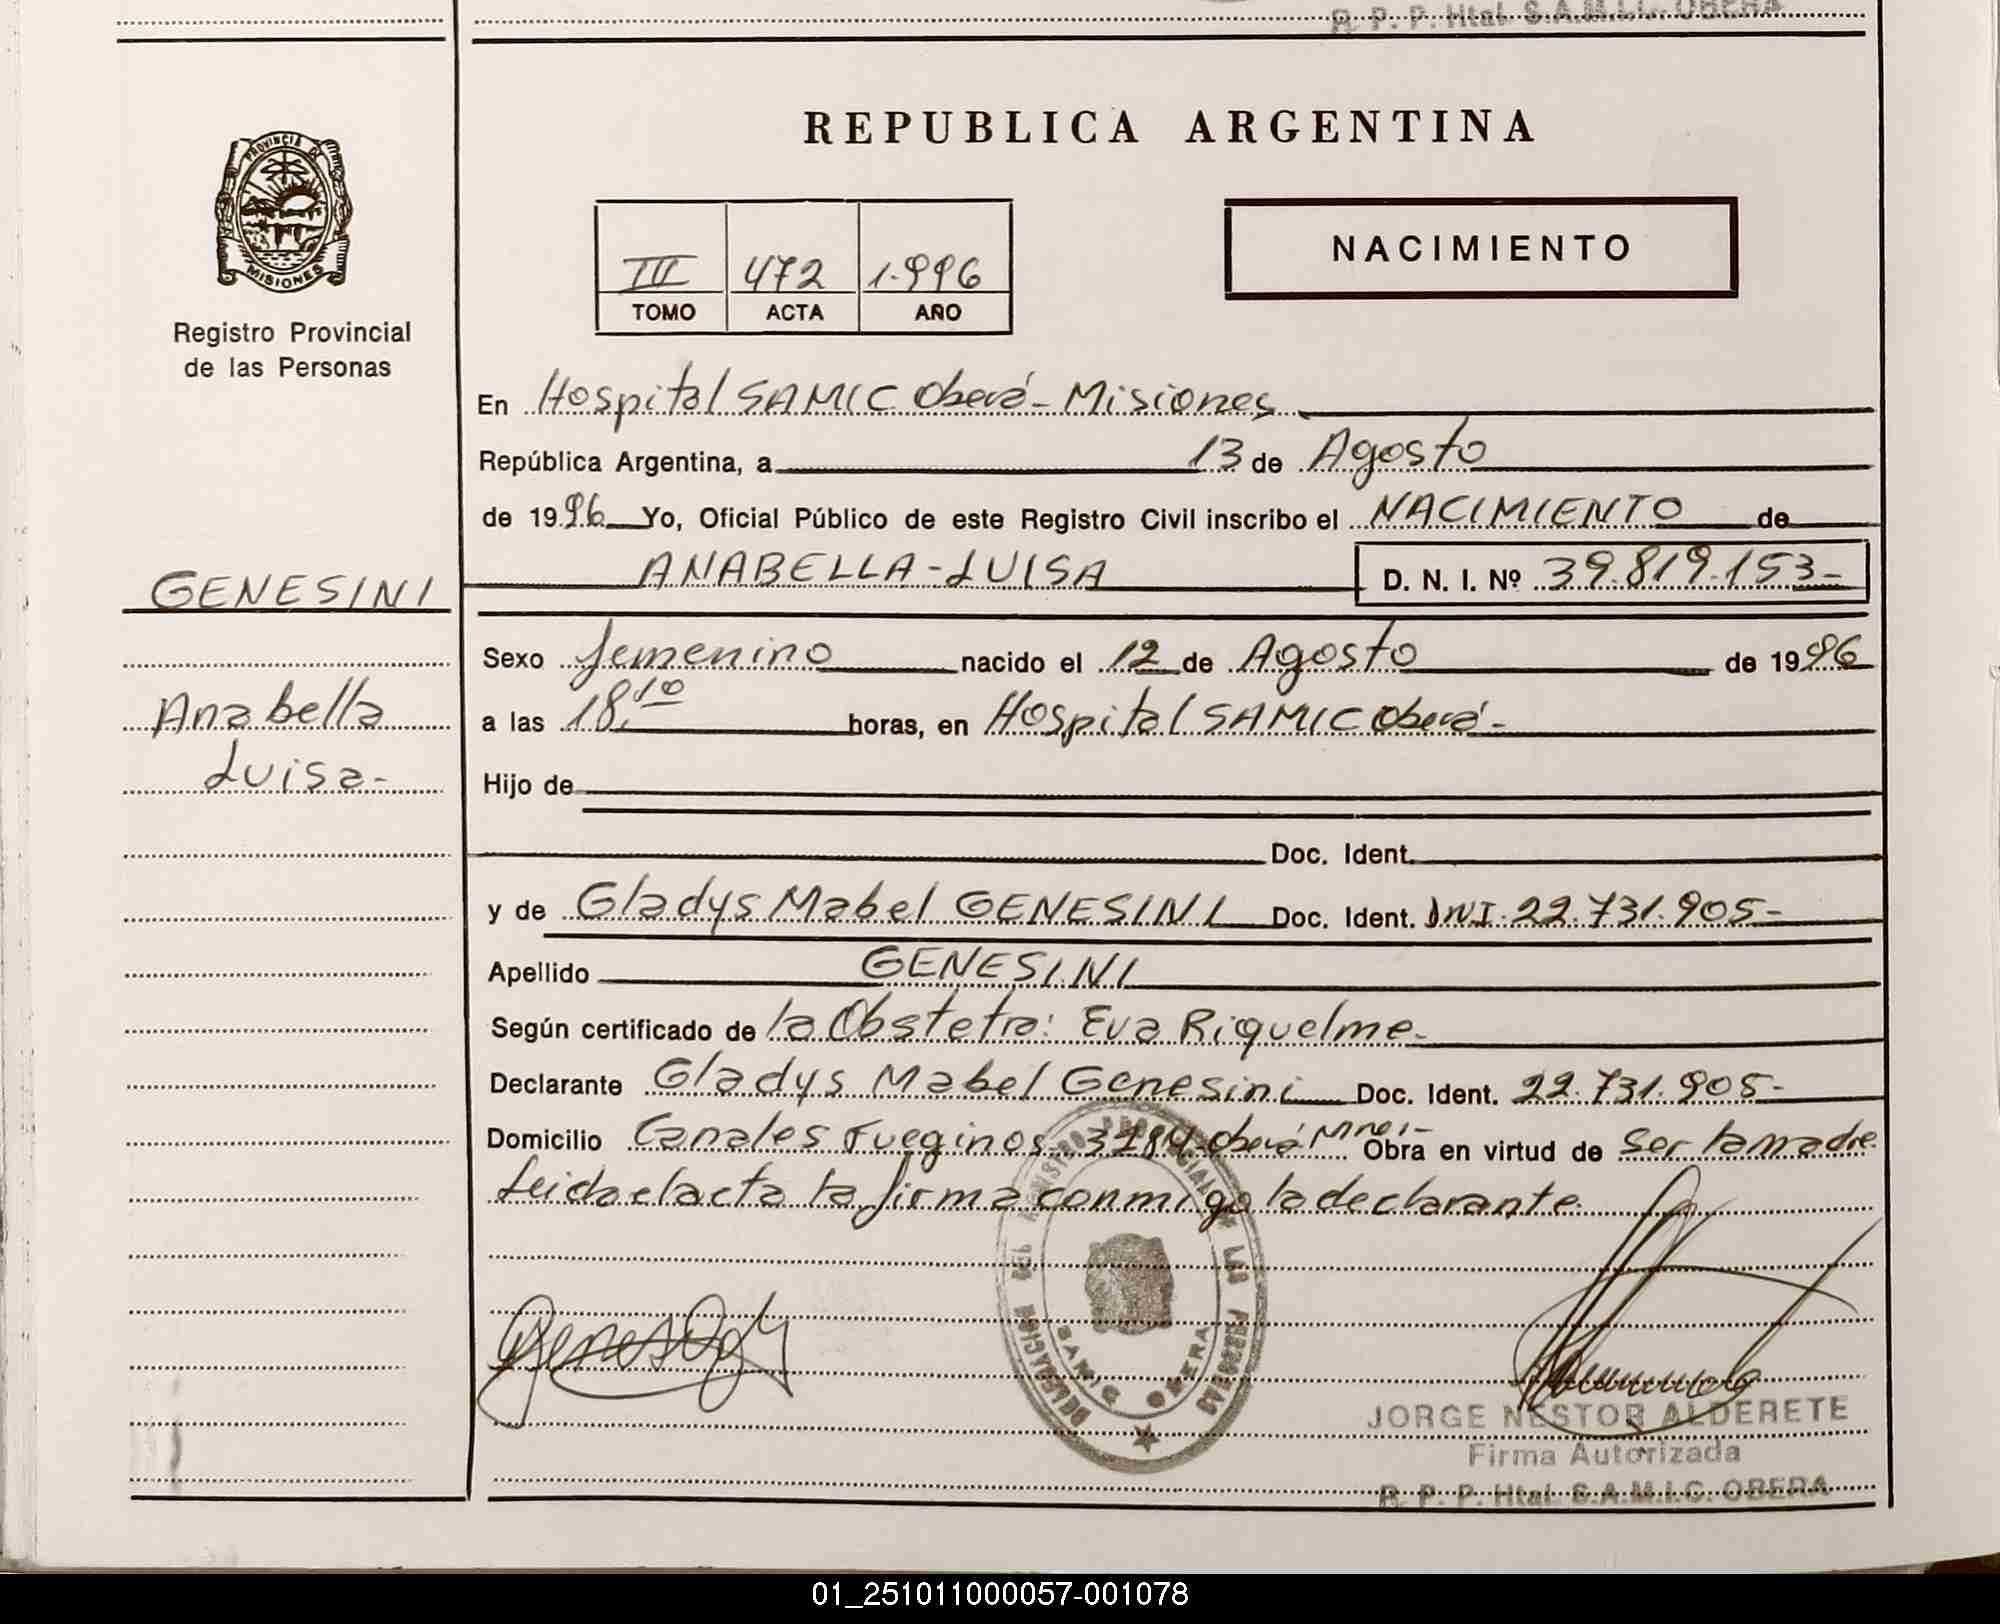 R. P. P. Htal. S.A.M.I.C. OBERA
REPUBLICA ARGENTINA
PROVINCIA DE
MISIONES
Registro Provincial
de las Personas
NACIMIENTO
III 472 1.996
TOMO ACTA AÑO
En Hospital SAMIC Oberá - Misiones
República Argentina, a 13 de Agosto
de 1996 Yo, Oficial Público de este Registro Civil inscribo el NACIMIENTO de
GENESINI
ANABELLA - LUISA D. N. I. Nº 39.819.153-
Sexo femenino nacido el 12 de Agosto de 1996
Anabella
a las 18,10 horas, en Hospital SAMIC Oberá-
Luisa-
Hijo de
Doc. Ident.
y de Gladys Mabel GENESINI Doc. Ident. DNI. 22.731.905-
Apellido GENESINI
Según certificado de la Obstetra: Eva Riquelme-
Declarante Gladys Mabel Genesini Doc. Ident. 22.731.905-
Domicilio Canales Fueginos 3184-Oberá Mnes- Obra en virtud de ser la madre
Leida el acta la firma conmigo la declarante
DELEGACION DEL REGISTRO PROVINCIAL DE LAS PERSONAS
SAMIC OBERA
JORGE NESTOR ALDERETE
Firma Autorizada
R. P. P. Htal. S.A.M.I.C. OBERA
01_251011000057-001078